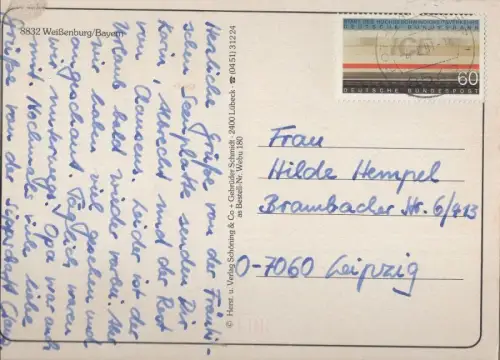 8832 Weißenburg/Bayern
Herzliche Grüße von der Fränki-
schen Seenplatte senden Dir
Karin, Albrecht und der Rest
von Clausens. Leider ist der
Urlaub bald wieder vorbei. Wir
haben viel gesehen und
angeschaut. Täglich waren
wir unterwegs. Opa war auch
mit. Nochmals viele liebe
Grüße von der
© Herst. u. Verlag Schöning & Co + Gebrüder Schmidt · 2400 Lübeck · ☎ (0451) 31224
as Bestell-Nr. Webu 180
START DES HOCHGESCHWINDIGKEITSVERKEHRS
DEUTSCHE BUNDESBAHN
60
DEUTSCHE BUNDESPOST
Frau
Hilde Hempel
Brambacher Str. 6/413
O-7060 Leipzig